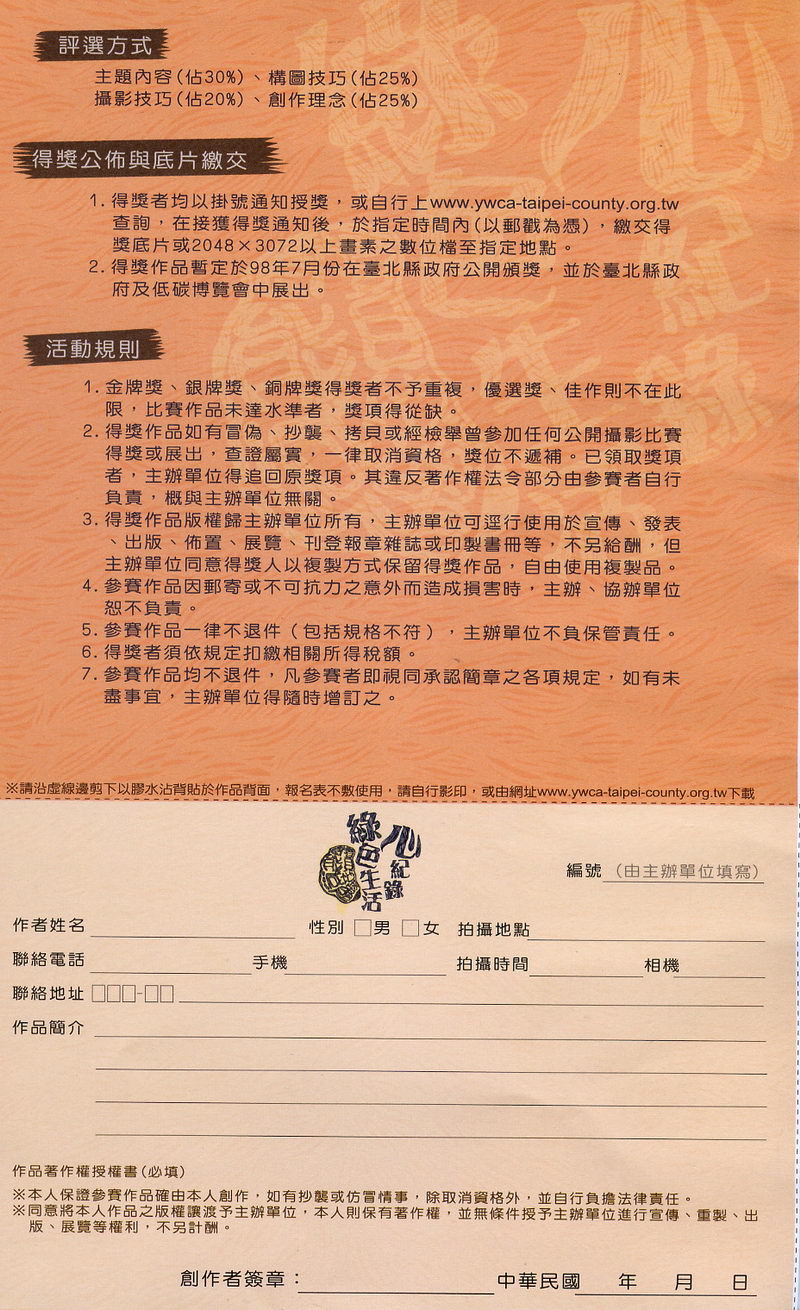 評選方式
主題內容(佔30%)、構圖技巧(佔25%)
攝影技巧(佔20%)、創作理念(佔25%)
得獎公佈與底片繳交
1. 得獎者均以掛號通知授獎，或自行上www.ywca-taipei-county.org.tw
查詢，在接獲得獎通知後，於指定時間內(以郵戳為憑)，繳交得
獎底片或2048×3072以上畫素之數位檔至指定地點。
2. 得獎作品暫定於98年7月份在臺北縣政府公開頒獎，並於臺北縣政
府及低碳博覽會中展出。
活動規則
1. 金牌獎、銀牌獎、銅牌獎得獎者不予重複，優選獎、佳作則不在此
限，比賽作品未達水準者，獎項得從缺。
2. 得獎作品如有冒偽、抄襲、拷貝或經檢舉曾參加任何公開攝影比賽
得獎或展出，查證屬實，一律取消資格，獎位不遞補。已領取獎項
者，主辦單位得追回原獎項。其違反著作權法令部分由參賽者自行
負責，概與主辦單位無關。
3. 得獎作品版權歸主辦單位所有，主辦單位可逕行使用於宣傳、發表
、出版、佈置、展覽、刊登報章雜誌或印製書冊等，不另給酬，但
主辦單位同意得獎人以複製方式保留得獎作品，自由使用複製品。
4. 參賽作品因郵寄或不可抗力之意外而造成損害時，主辦、協辦單位
恕不負責。
5. 參賽作品一律不退件（包括規格不符），主辦單位不負保管責任。
6. 得獎者須依規定扣繳相關所得稅額。
7. 參賽作品均不退件，凡參賽者即視同承認簡章之各項規定，如有未
盡事宜，主辦單位得隨時增訂之。
※請沿虛線邊剪下以膠水沾背貼於作品背面，報名表不敷使用，請自行影印，或由網址www.ywca-taipei-county.org.tw下載
綠色生活
心紀錄
編號（由主辦單位填寫）
作者姓名 性別 □男 □女 拍攝地點
聯絡電話 手機 拍攝時間 相機
聯絡地址 □□□-□□
作品簡介
作品著作權授權書(必填)
※本人保證參賽作品確由本人創作，如有抄襲或仿冒情事，除取消資格外，並自行負擔法律責任。
※同意將本人作品之版權讓渡予主辦單位，本人則保有著作權，並無條件授予主辦單位進行宣傳、重製、出
版、展覽等權利，不另計酬。
創作者簽章： 中華民國 年 月 日